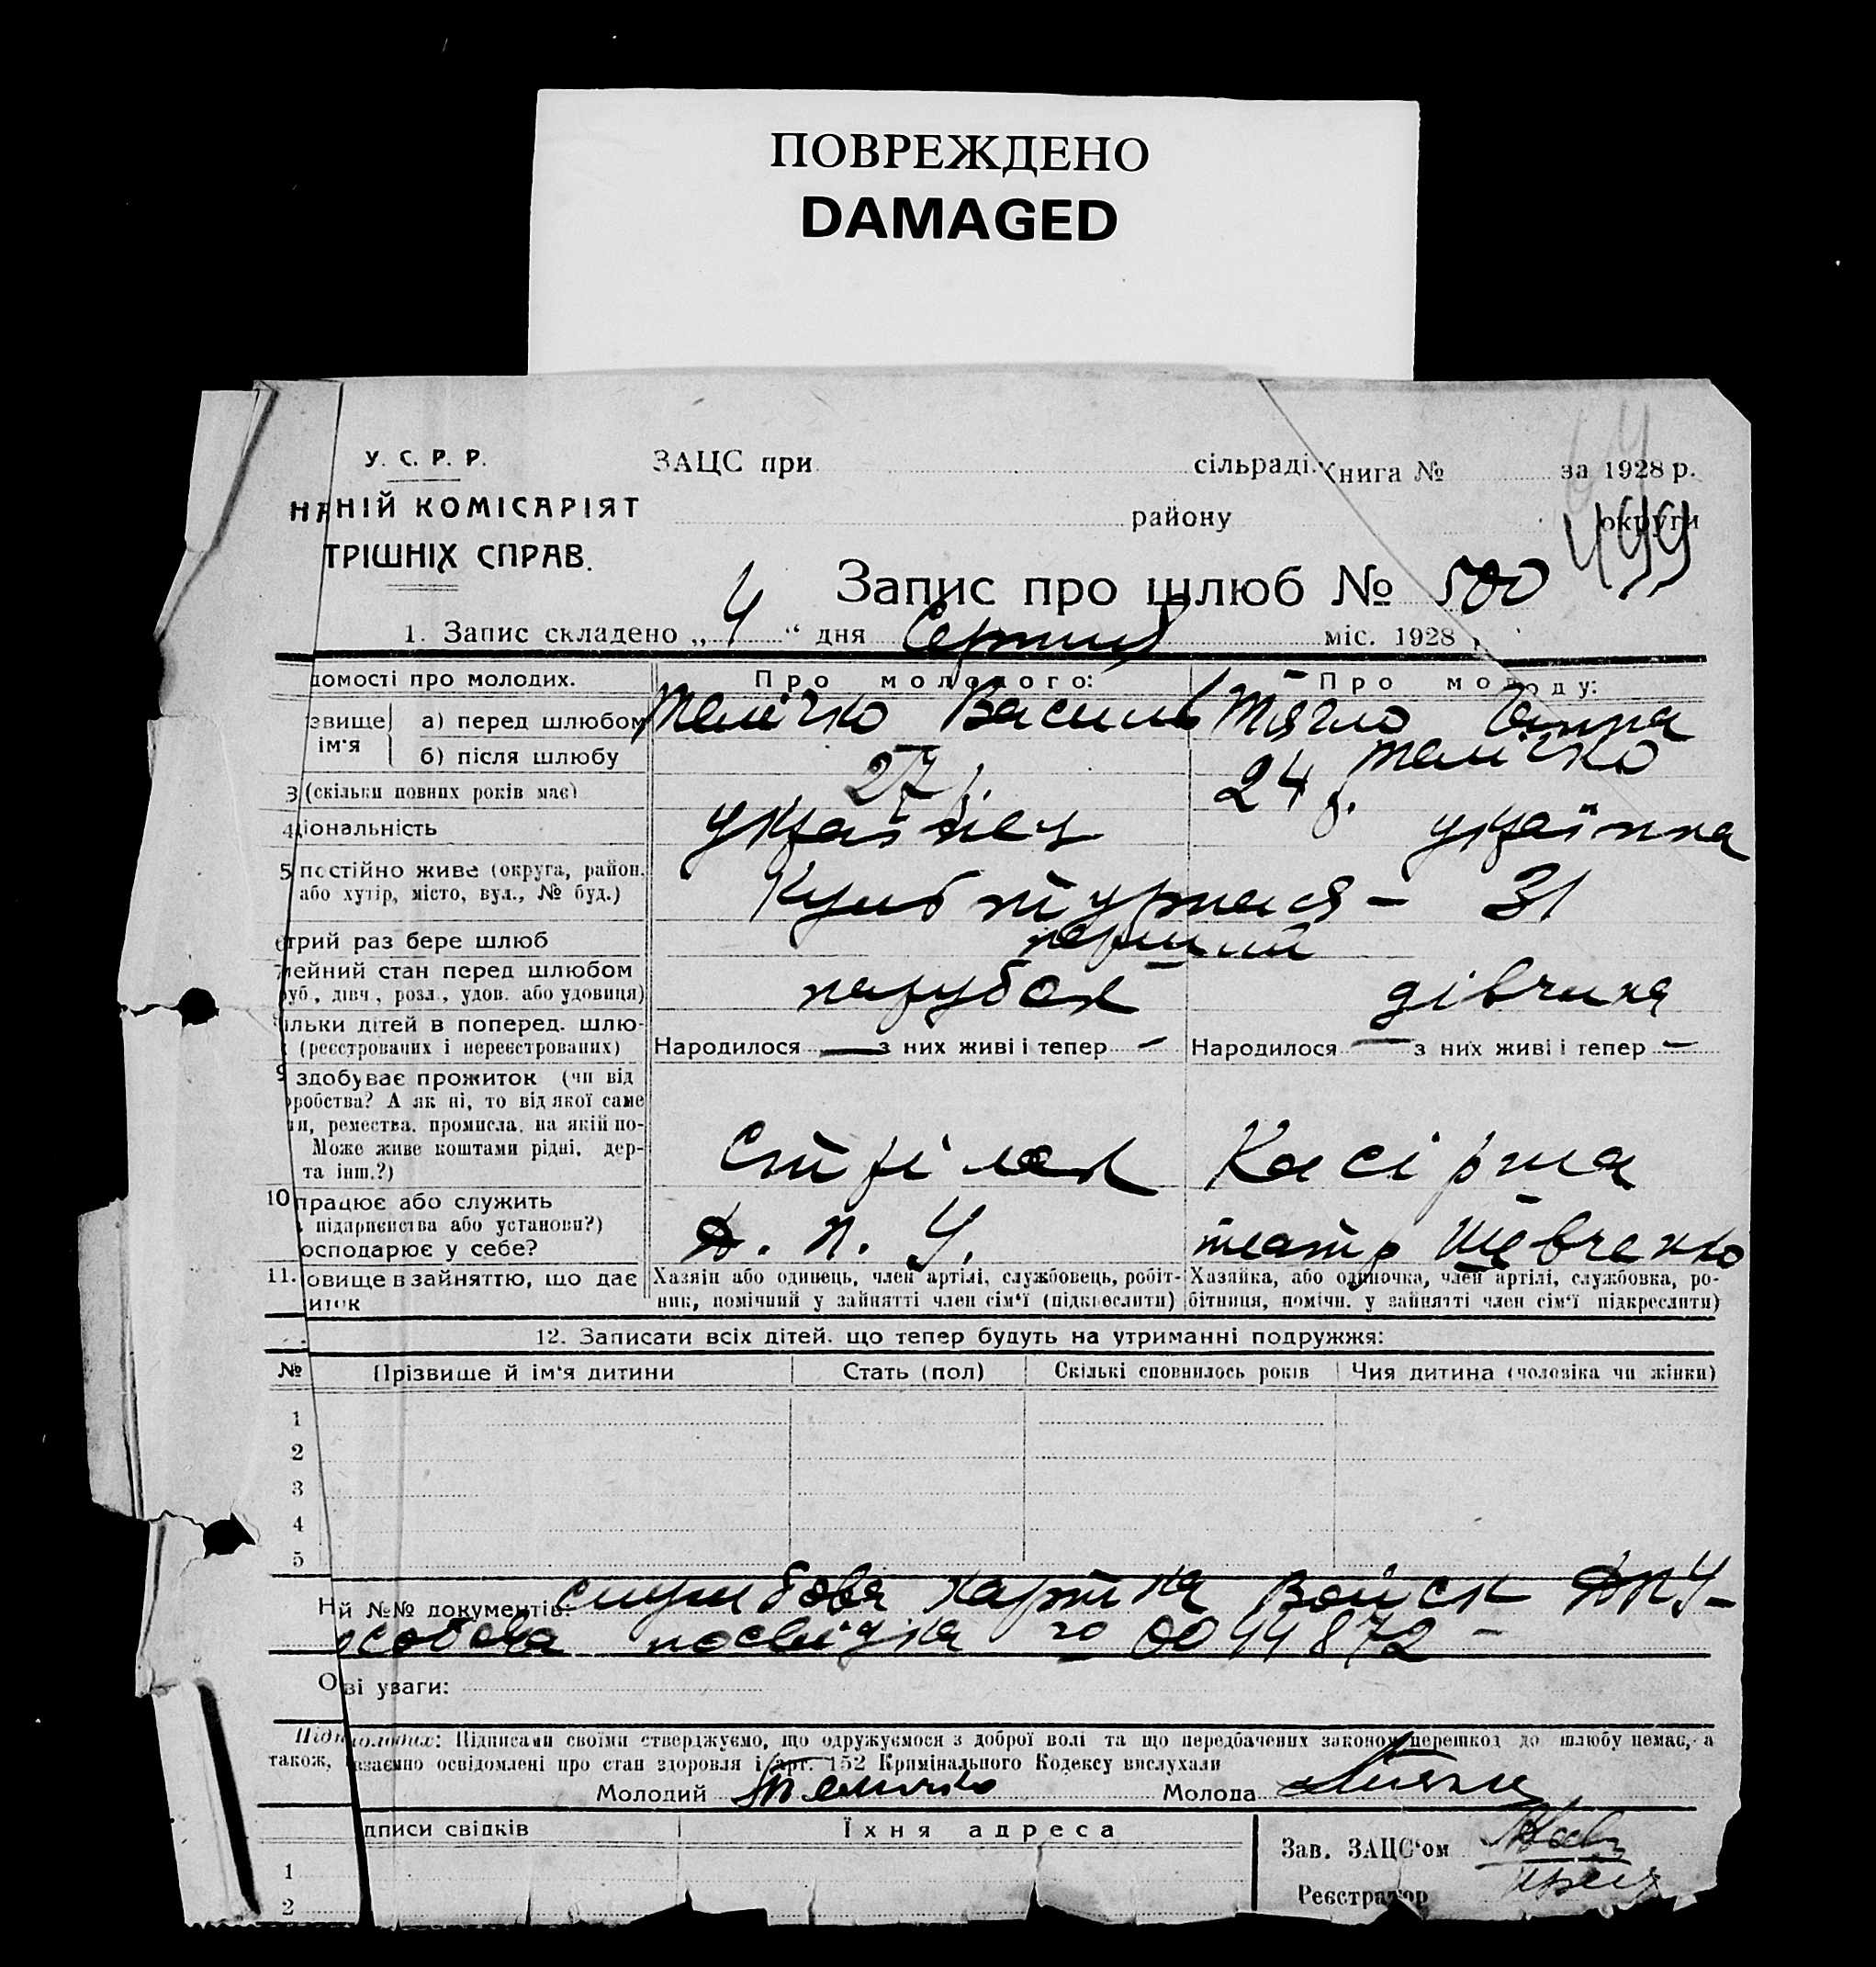 ПОВРЕЖДЕНО
DAMAGED
У. С. Р. Р.
ЗАЦС при сільраді. Книга № за 1928 р.
НИЙ КОМІСАРІЯТ
району округи
499
ТРІШНІХ СПРАВ.
Запис про шлюб № 500
1. Запис складено „ 4 “ дня Серпня міс. 1928
домості про молодих. Про молодого: Про молоду:
звище ім'я а) перед шлюбом Телічко Василь Тягло Ганна
б) після шлюбу Телічко
3 (скільки повних років має) 27 р. 24 р.
4 ціональність українец українка
5 постійно живе (округа, район, Культурная - 31
або хутір, місто, вул., № буд.)
трий раз бере шлюб перший
7 мейний стан перед шлюбом парубок дівчина
руб., дівч., розл., удов. або удовиця)
ільки дітей в поперед. шлю-
(реєстрованих і нереєстрованих) Народилося — з них живі і тепер — Народилося — з них живі і тепер —
9 здобуває прожиток (чи від
робства? А як ні, то від якої саме
ги, ремества, промисла, на якій по-
Може живе коштами рідні, дер- Стрілок Касірша
та інш.?)
10 працює або служить
підприємства або установи?) Д. П. У. театр Шевченко
осподарює у себе?
11. овище в зайняттю, що дає Хазяїн або одинець, член артілі, службовець, робіт- Хазяйка, або одиночка, член артілі, службовка, ро-
иток ник, помічний у зайнятті член сім'ї (підкреслити) бітниця, помічн. у зайнятті член сім'ї підкреслити)
12. Записати всіх дітей, що тепер будуть на утриманні подружжя:
№ Прізвище й ім'я дитини Стать (пол) Скількі сповнилось років Чия дитина (чоловіка чи жінки)
1
2
3
4
5
Н й №№ документів: службова картка Войск ДПУ-
особова посвідка № 0044872 -
О ві уваги:
Підп молодих: Підписами своїми стверджуємо, що одружуємося з доброї волі та що передбачених законом перешкод до шлюбу немає, а
також, взаємно освідомлені про стан здоровля і арт. 152 Кримінального Кодексу вислухали
Молодий Теличко Молода
дписи свідків Їхня адреса
Зав. ЗАЦС'ом
1
Реєстратор
2